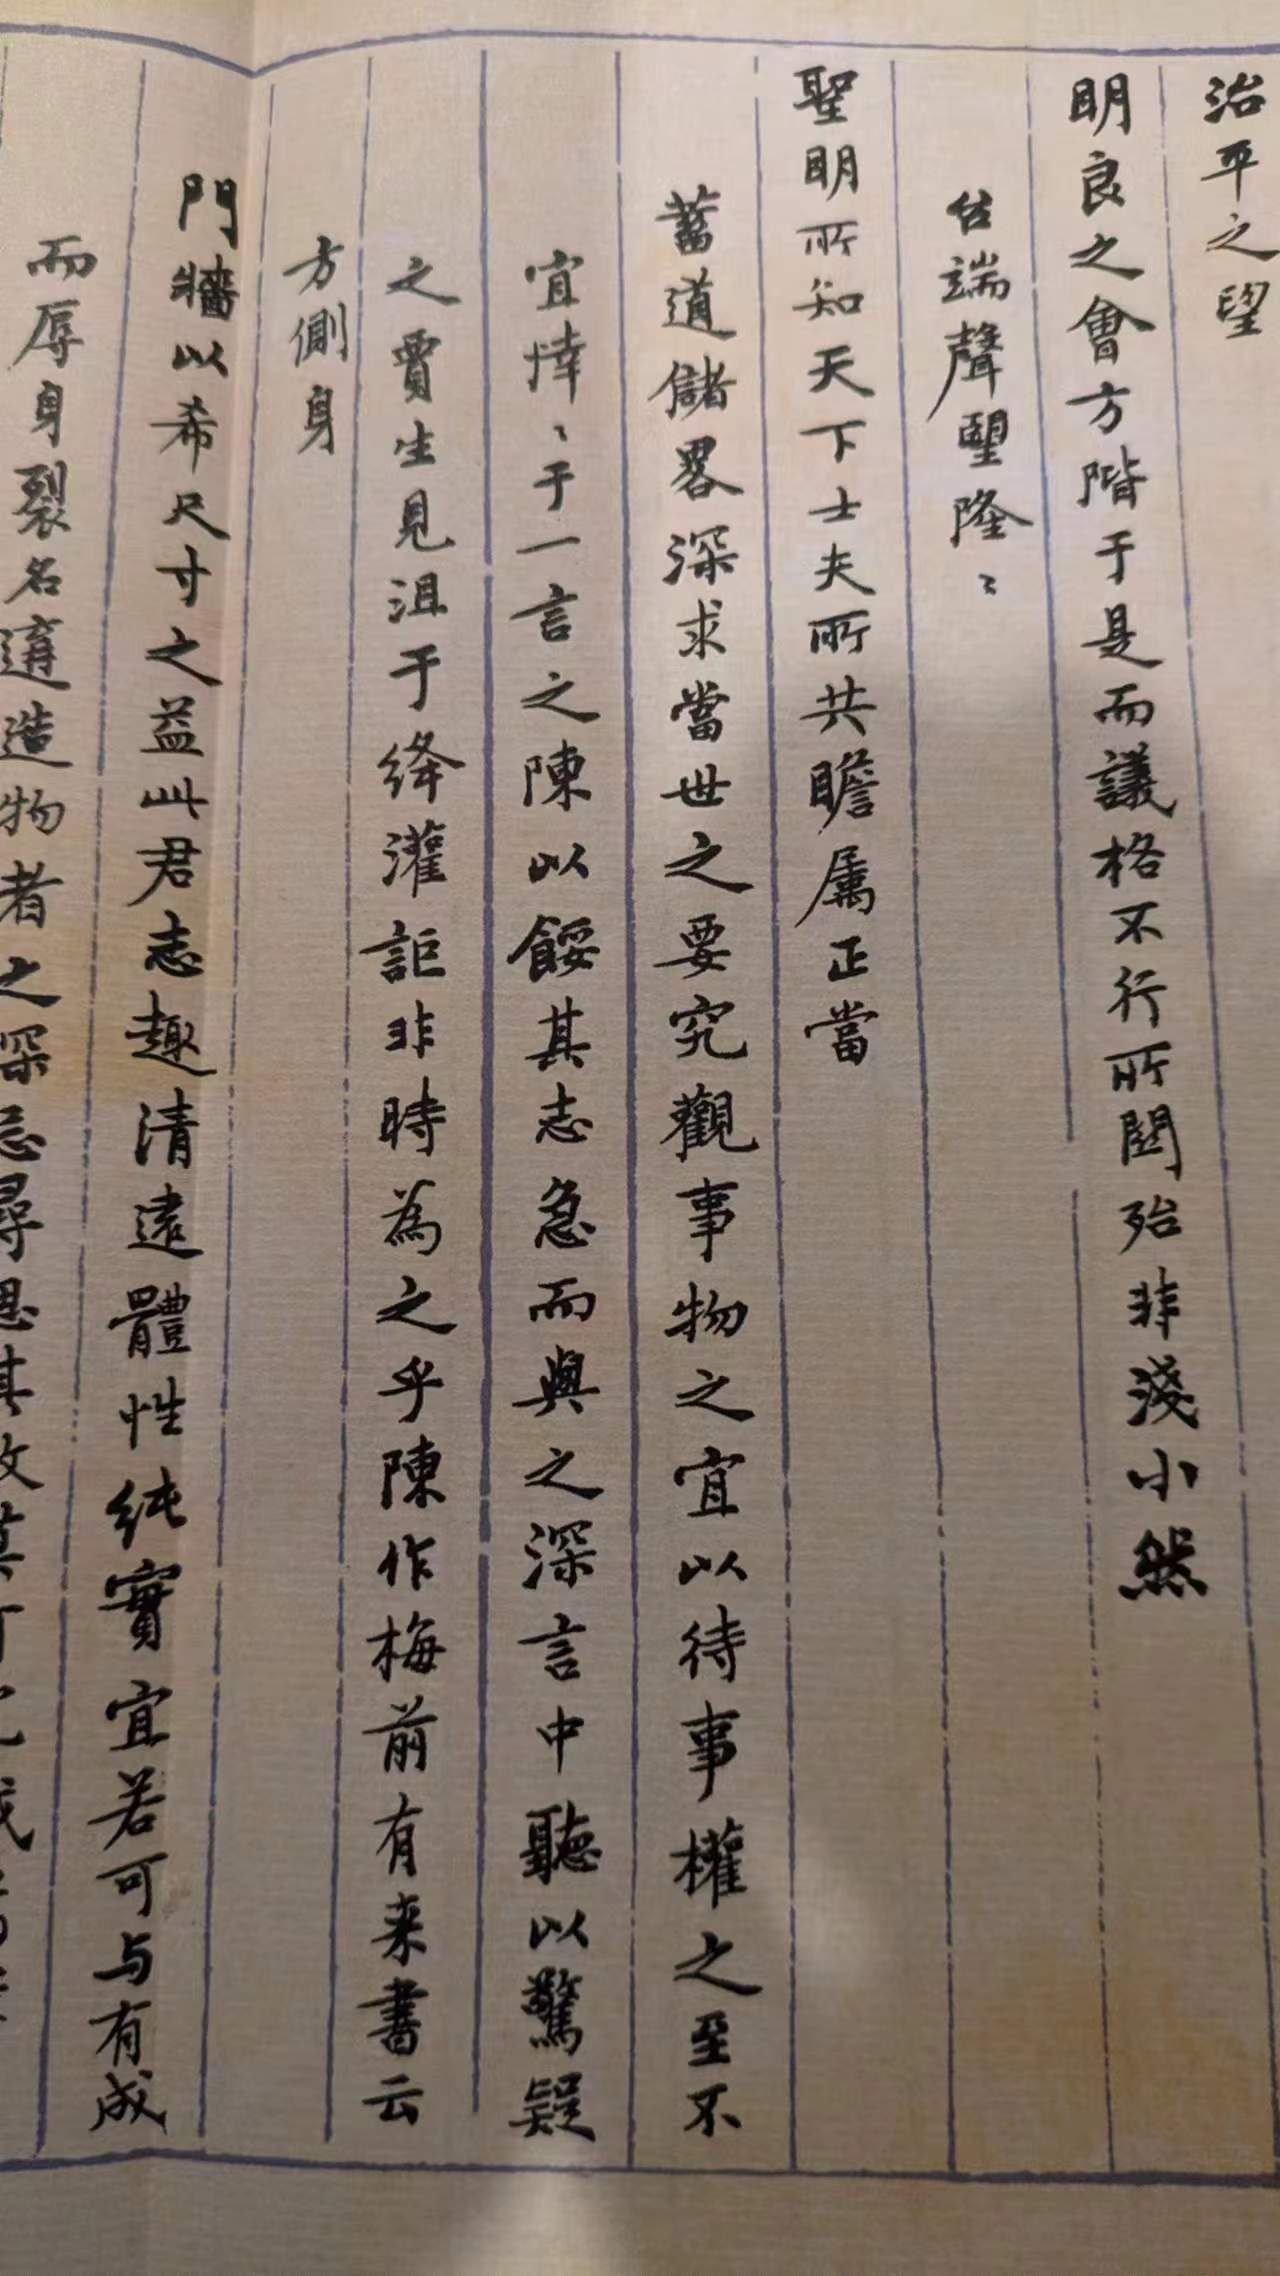 治平之望
明良之會方階于是而議格不行所關殆非淺小然
台端聲望隆〻
聖明所知天下士夫所共瞻屬正當
蓄道儲畧深求當世之要究觀事物之宜以待事權之至不
宜悻〻于一言之陳以餒其志急而與之深言中聽以驚疑
之賈生見沮于絳灌詎非時為之乎陳作梅前有来書云
方側身
門牆以希尺寸之益此君志趣清遠體性純實宜若可与有成
而辱身裂名遘造物者之深忌尋思其故莫可